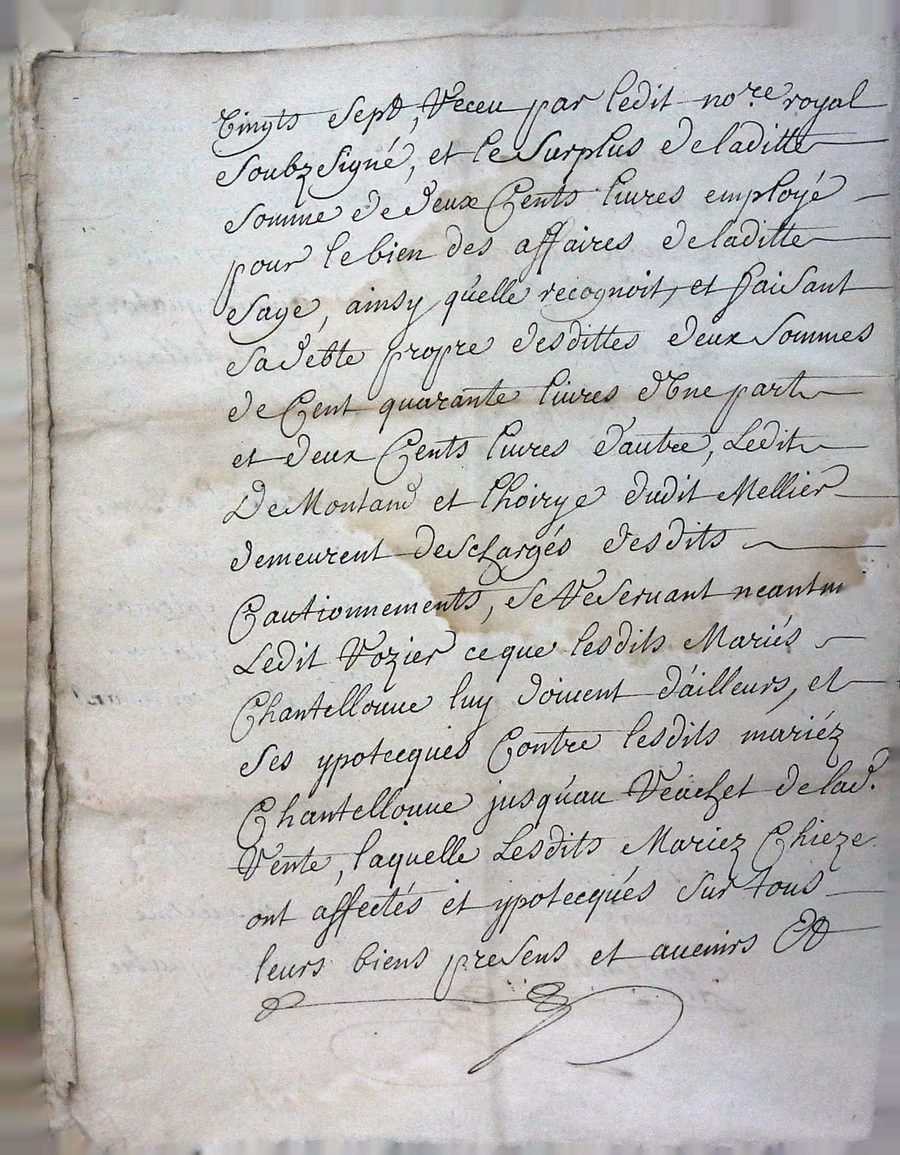 Vingts sept, Receu par ledit no.re royal
Soubz Signé, et le Surplus de laditte
Somme de deux Cents livres employé
pour le bien des affaires de laditte
Sage, ainsy qu'elle recognoit, et faisant
Sa debte propre desdittes deux Sommes
de Cent quarante livres d'Une part
et deux Cents livres d'autre, Ledit
De Montand et l'hoirye dudit Mellier
demeurent deschargés desdits
Cautionnements, se Reservant neantm
Ledit Rozier ce que lesdits Mariés
Chantellouue luy doivent d'ailleurs, et
Ses ypotecques Contre lesdits mariéz
Chantellouue jusqu'au Reachet de lad.
Vente, laquelle Lesdits Mariez Chieze
ont affectés et ypotecqués Sur tous
leurs biens presens et avenirs Et